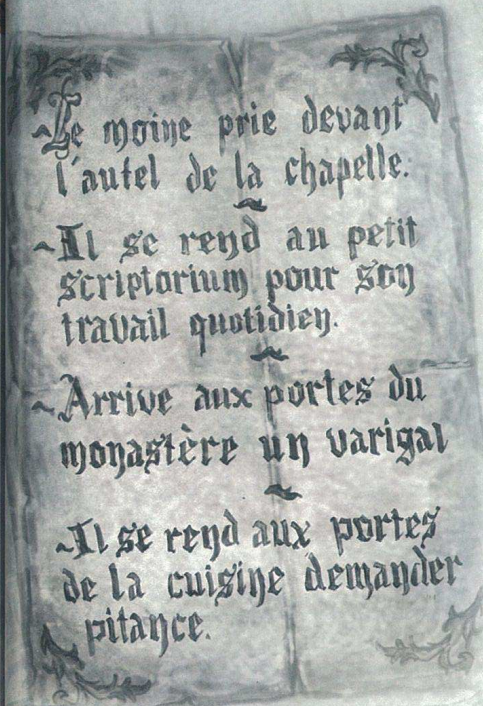 ~Le moine prie devant
l'autel de la chapelle.
~Il se rend au petit
scriptorium pour son
travail quotidien.
~Arrive aux portes du
monastère un varigal
~Il se rend aux portes
de la cuisine demander
pitance.